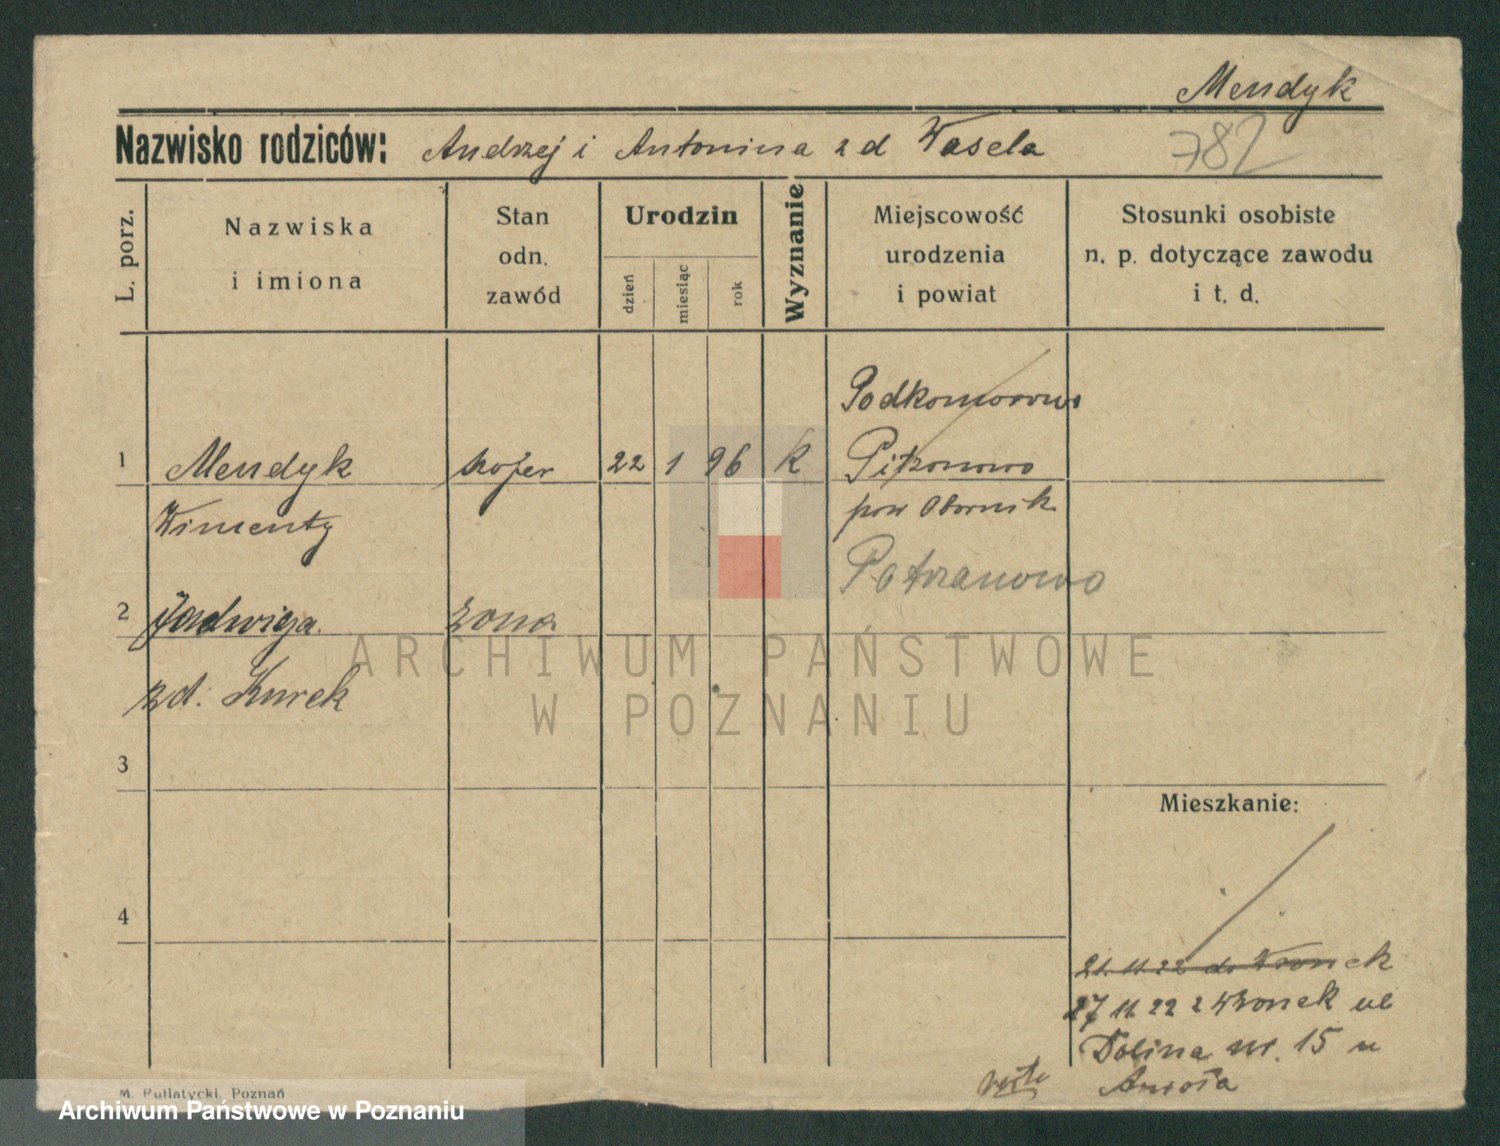 Mendyk
782
Nazwisko rodziców: Andrzej i Antonina z d Wasela
L. porz.
Nazwiska
i imiona
Stan
odn.
zawód
Urodzin
dzień
miesiąc
rok
Wyznanie
Miejscowość
urodzenia
i powiat
Stosunki osobiste
n. p. dotyczące zawodu
i t. d.
Podkomorowo
1 Mendyk szofer 22 1 96 K
pow Obornik
2 Jadwiga żona
zd. Kurek
3
4
Mieszkanie:
21.11 22 do Wronek
27 11 22 z Wronek ul
Dolina nr. 15 u
M. Putiatycki, Poznań
ARCHIWUM PAŃSTWOWE
W POZNANIU
Archiwum Państwowe w Poznaniu